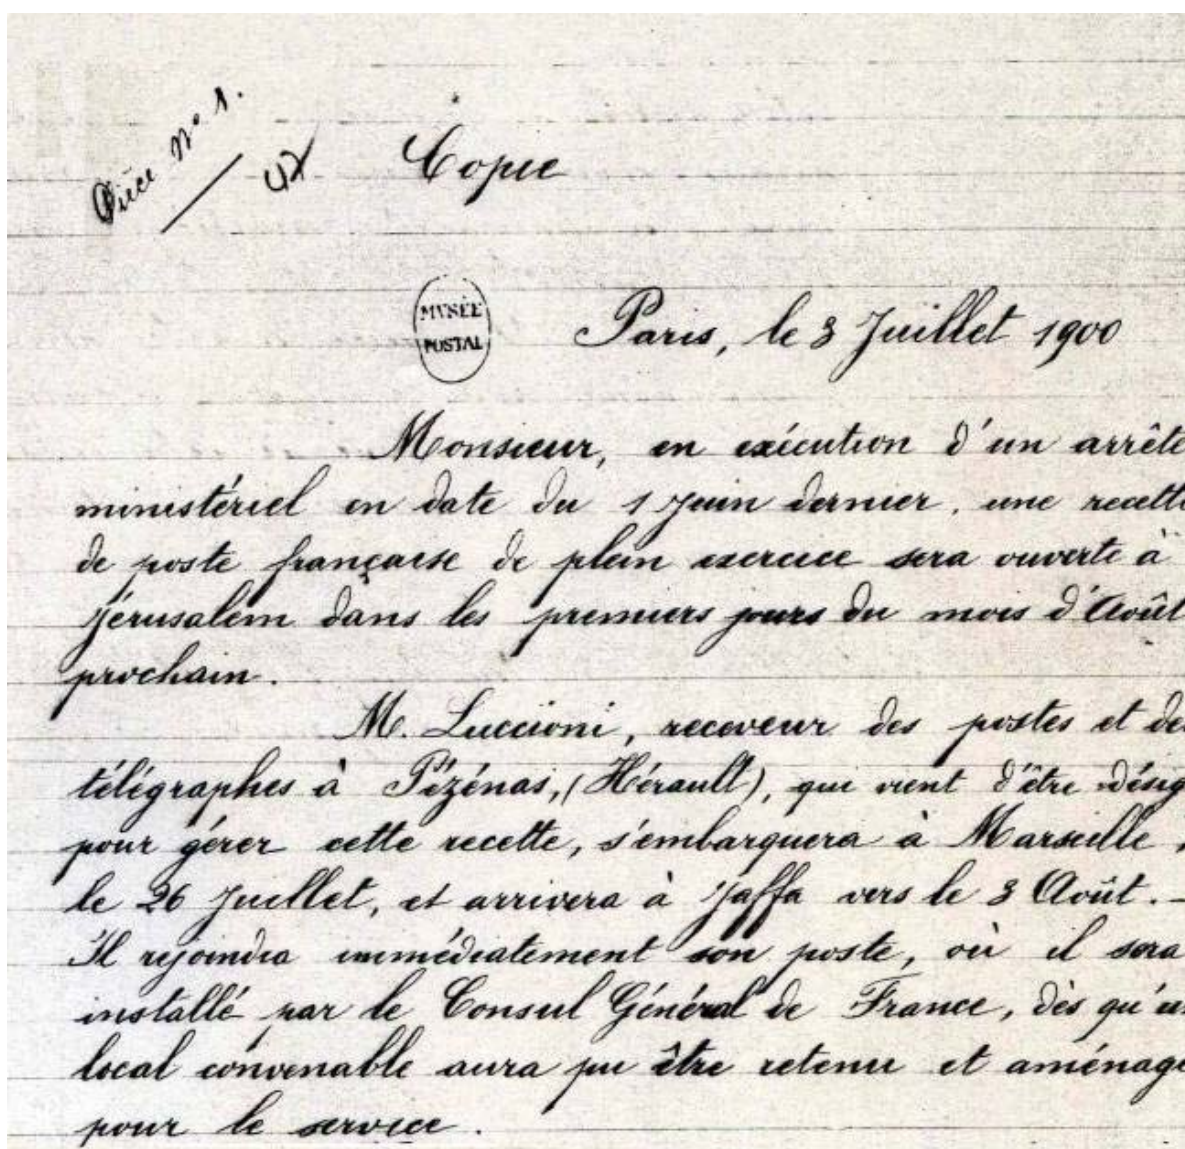 Pièce No 1.
42
Copie
MUSÉE
POSTAL
Paris, le 3 Juillet 1900
Monsieur, en exécution d'un arrêté
ministériel en date du 1 Juin dernier, une recette
de poste française de plein exercice sera ouverte à
Jérusalem dans les premiers jours du mois d'Août
prochain.
M. Luccioni, receveur des postes et des
télégraphes à Pézénas, (Hérault), qui vient d'être désig
pour gérer cette recette, s'embarquera à Marseille,
le 26 Juillet, et arrivera à Jaffa vers le 3 Août. –
Il rejoindra immédiatement son poste, où il sera
installé par le Consul Général de France, dès qu'un
local convenable aura pu être retenu et aménagé
pour le service.